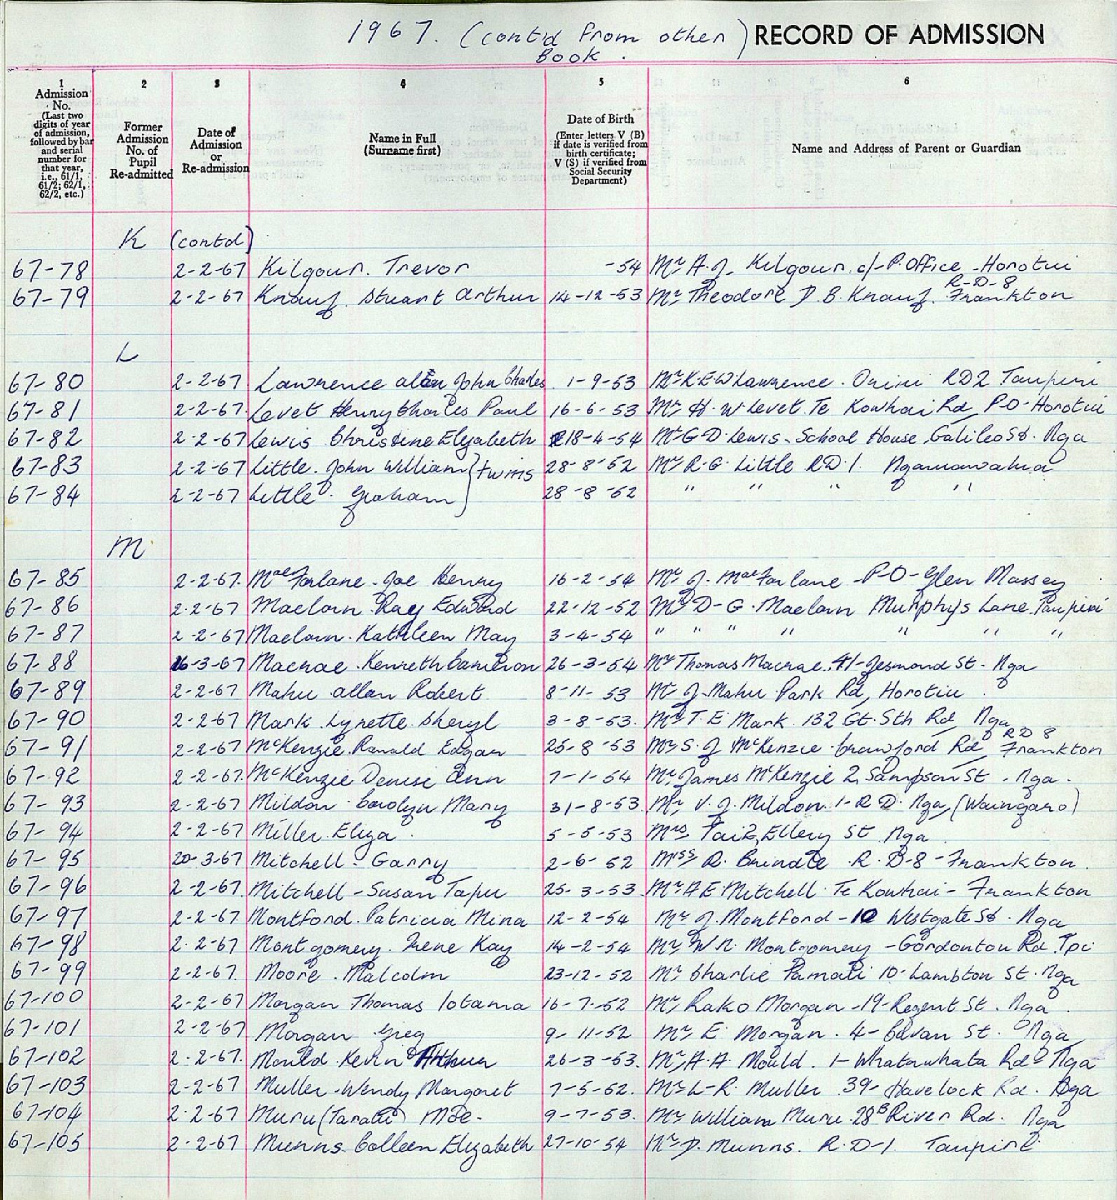 1967. (contd from other) RECORD OF ADMISSION
Book.
1 2 3 4 5 6
Admission No. (Last two digits of year of admission, followed by bar and serial number for that year, i.e., 61/1, 61/2; 62/1, 62/2, etc.)
Former Admission No. of Pupil Re-admitted
Date of Admission or Re-admission
Name in Full (Surname first)
Date of Birth (Enter letters V (B) if date is verified from birth certificate; V (S) if verified from Social Security Department)
Name and Address of Parent or Guardian
K (contd)
67-78 2-2-67 Kilgour. Trevor -54 Mr A.J. Kilgour, c/- P.Office - Horotiu
67-79 2-2-67 Knauf. Stuart Arthur 14-12-53 Mr Theodore D B. Knauf. R-D-8 Frankton
L
67-80 2-2-67 Lawrence John Charles 1-9-53 Mr K E W Lawrence. Orini RD2 Taupiri
67-81 2-2-67 Levet Henry Charles Paul 16-6-53 Mr H. W Levet Te Kowhai Rd, P-O-Horotiu
67-82 2-2-67 Lewis Christine Elizabeth 18-4-54 Mr G-D-Lewis-School House, Galileo St. Nga
67-83 2-2-67 Little. John William } twins 28-8-52 Mr R-G. Little RD.1. Ngaruawahia
67-84 2-2-67 Little. Graham } 28-8-52 " " " " "
M
67-85 2-2-67. MacFarlane. Joe Henry 16-2-54 Mr J. MacFarlane - P-O-Glen Massey
67-86 2-2-67 Ray Edward 22-12-52 Mr D-G. Murphys Lane. Taupiri
67-87 2-2-67 Kathleen May 3-4-54 " " " " " " "
67-88 16-3-67 Macrae. Kenneth Cameron 26-3-54 Mr Thomas Macrae. 41-Jesmond St. Nga
67-89 2-2-67 Mahu Allan Robert 8-11-53 Mr J. Mahu Park Rd, Horotiu
67-90 2-2-67 Mark. Lynette Sheryl 3-8-53. Mr T. E Mark. 132 Gt. Sth Rd, Nga
67-91 2-2-67 McKenzie. Ranald Edgar 25-8-53 Mr S. J McKenzie Crawford Rd, RD8 Frankton
67-92 2-2-67. McKenzie Denise Ann 7-1-54 Mr James McKenzie 2 Sampson St. Nga.
67-93 2-2-67 Mildon. Carolyn Mary 31-8-53. Mr V. J. Mildon. 1-R D. Nga, (Waingaro)
67-94 2-2-67 Miller. Eliza. 5-5-53 Mrs Ellery St Nga
67-95 20-3-67 Mitchell - Garry 2-6-52 Miss R. R-D-8-Frankton.
67-96 2-2-67 Mitchell - Susan Tapu 25-3-53. Mr A E Mitchell. Te Kowhai-Frankton
67-97 2-2-67 Montford. Patricia Mina 12-2-54 Mr J. Montford-10 Westgate St. Nga
67-98 2-2-67 Montgomery. Irene Kay 14-2-54 Mr W R. Montgomery - Gordonton Rd. Tpi
67-99 2-2-67. Moore. Malcolm 23-12-52 Mr Charlie 10-Lambton St. Nga
67-100 2-2-67 Morgan Thomas Iotama 16-7-52 Mr Rako Morgan-19-Regent St. Nga
67-101 2-2-67 Morgan Greg 9-11-52 Mr E Morgan. 4-Bevan St. Nga
67-102 2-2-67. Mould. Kevin Arthur 26-3-53. Mr A A Mould. 1-Whatawhata Rd-Nga
67-103 2-2-67 Muller. Wendy Margaret 7-5-52. Mr L-R. Muller 39-Havelock Rd. Nga
67-104 2-2-67 Muru (Taratu) Moe. 9-7-53. Mr William Muru. 28B River Rd. Nga
67-105 2-2-67 Munns. Colleen Elizabeth 27-10-54 Mr D. Munns. R-D-1 Taupiri